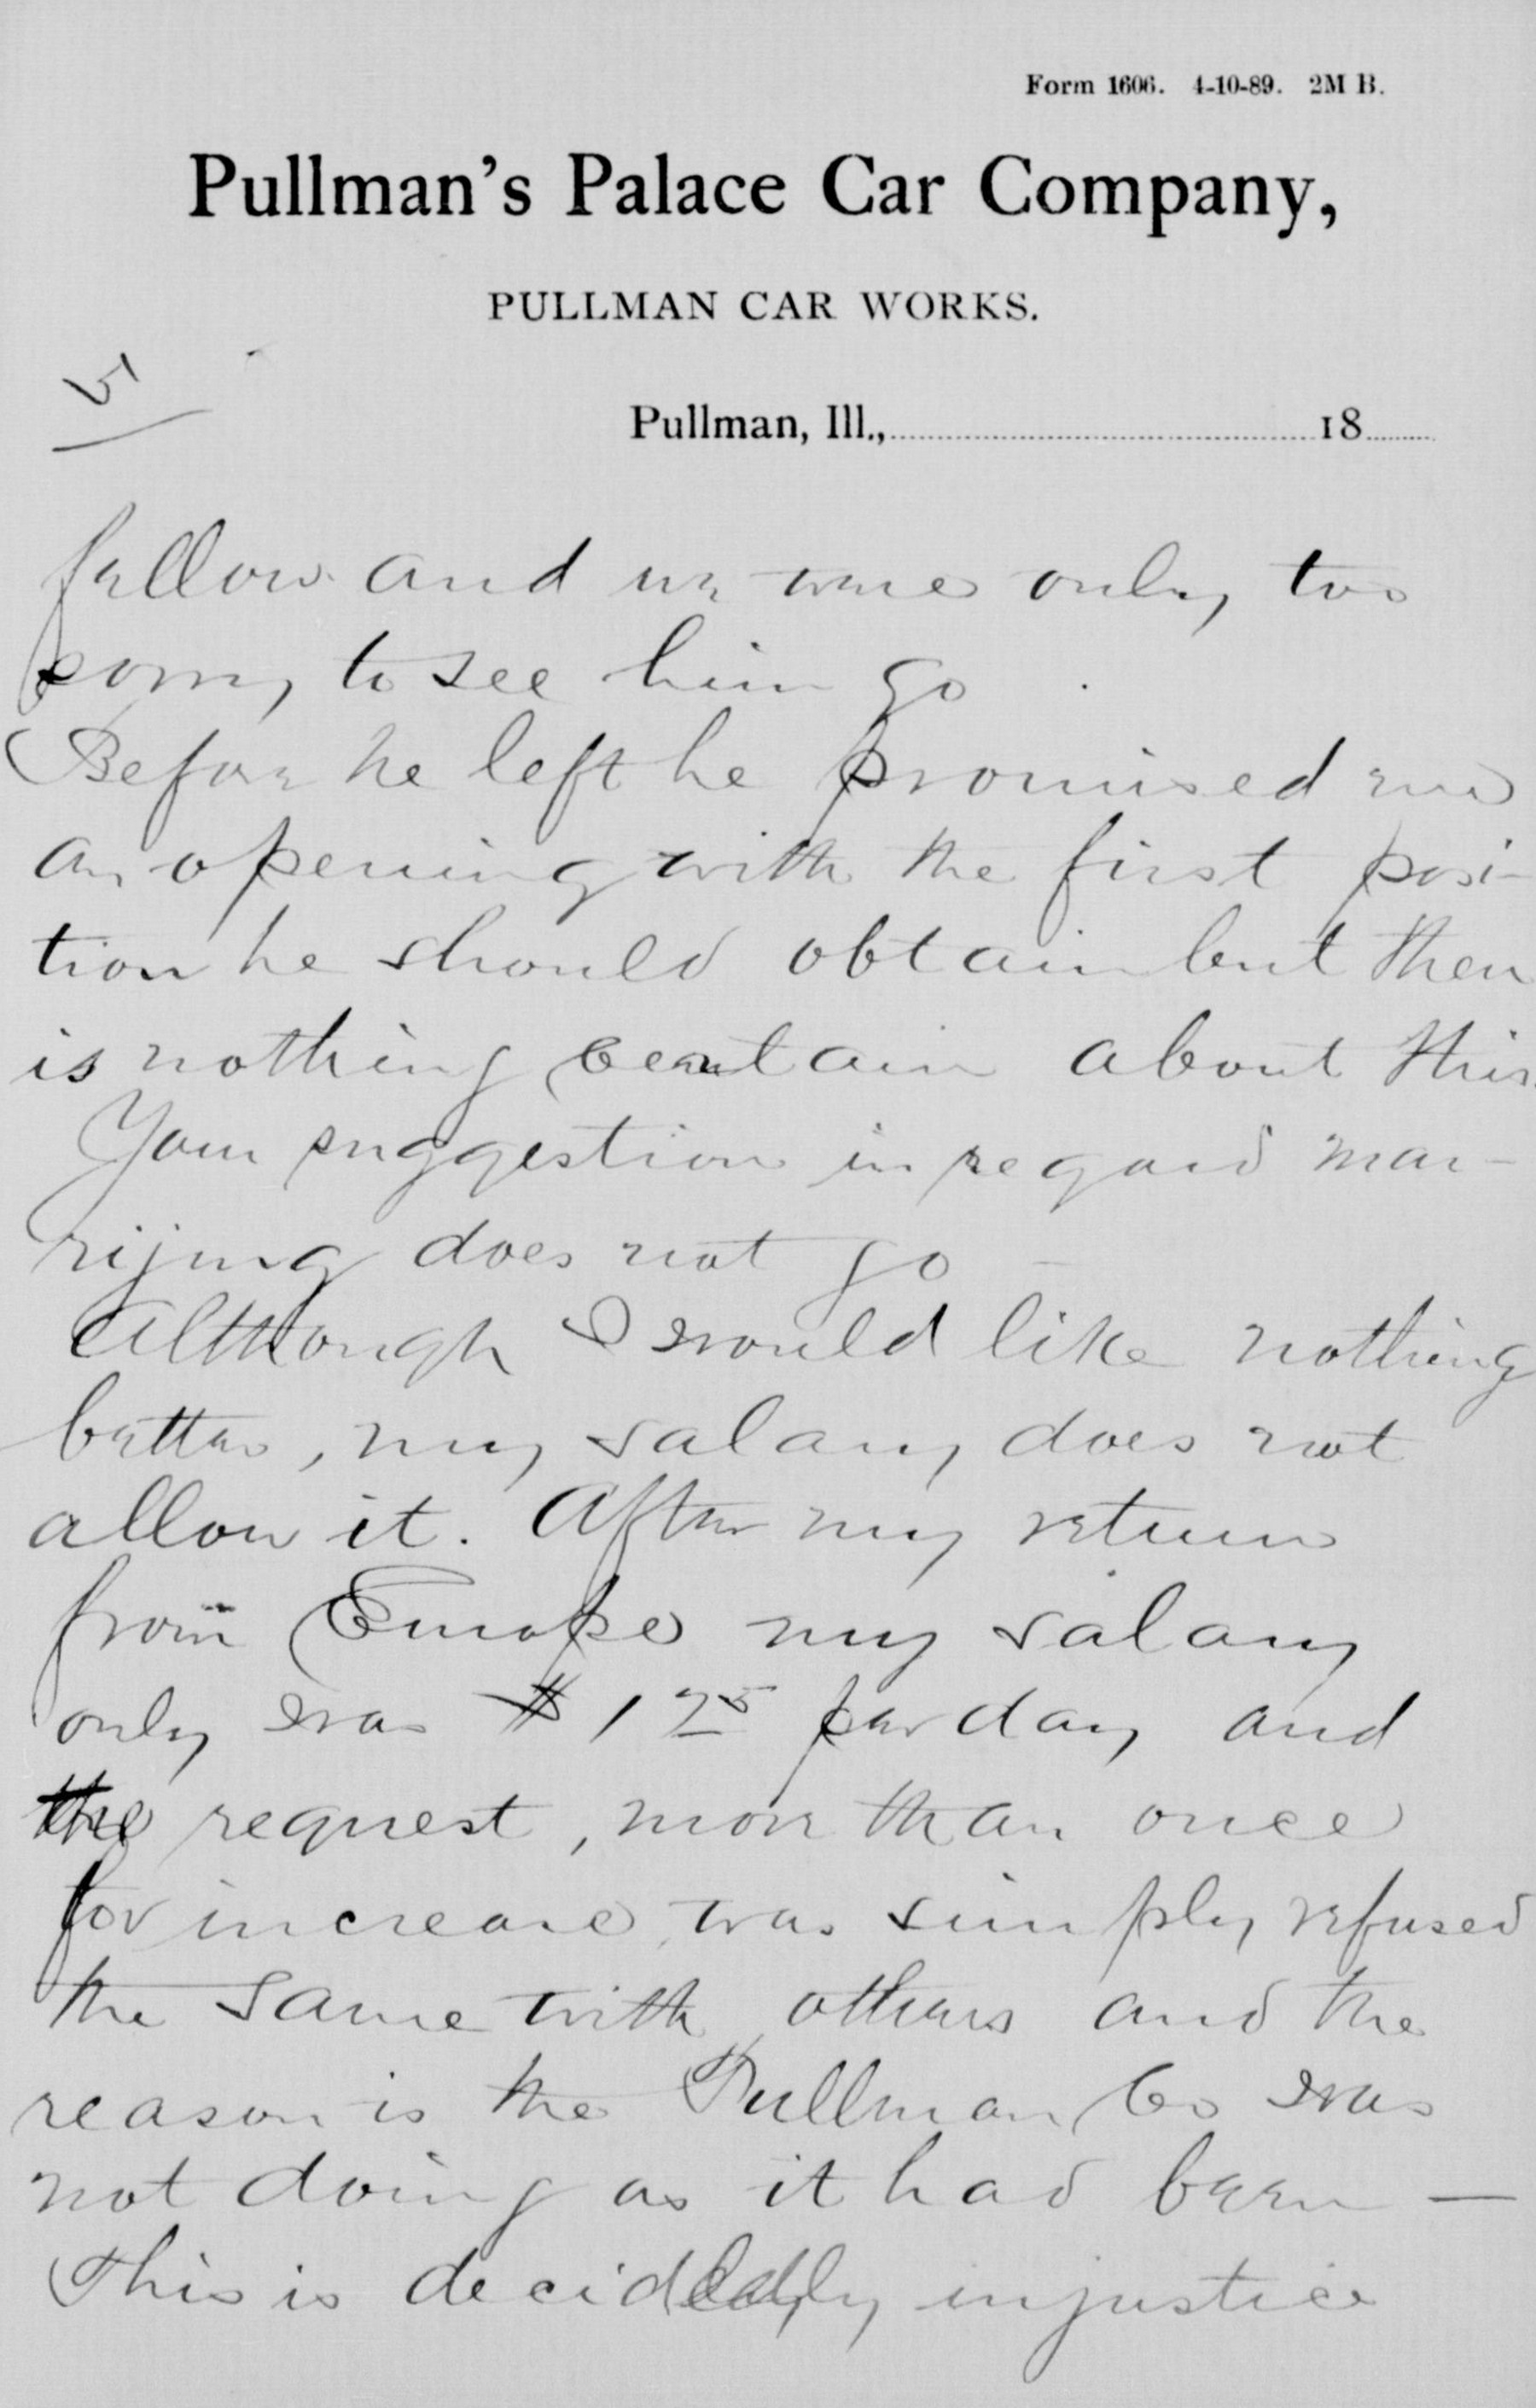 Form 1606. 4-10-89. 2M B.
Pullman's Palace Car Company,
PULLMAN CAR WORKS.
5
Pullman, Ill., 18
fellow and we were only too
sorry to see him go.
Before he left he promised me
an opening with the first posi-
tion he should obtain but there
is nothing certain about this.
Your suggestion in regard mar-
rijing does not go
Although I would like nothing
better, my salary does not
allow it. After my return
from Europe my salary
only was $1 75 per day and
the request, more than once
for increase, was simply refused
the same with others and the
reason is the Pullman Co was
not doing as it had been —
This is decidedly injustice